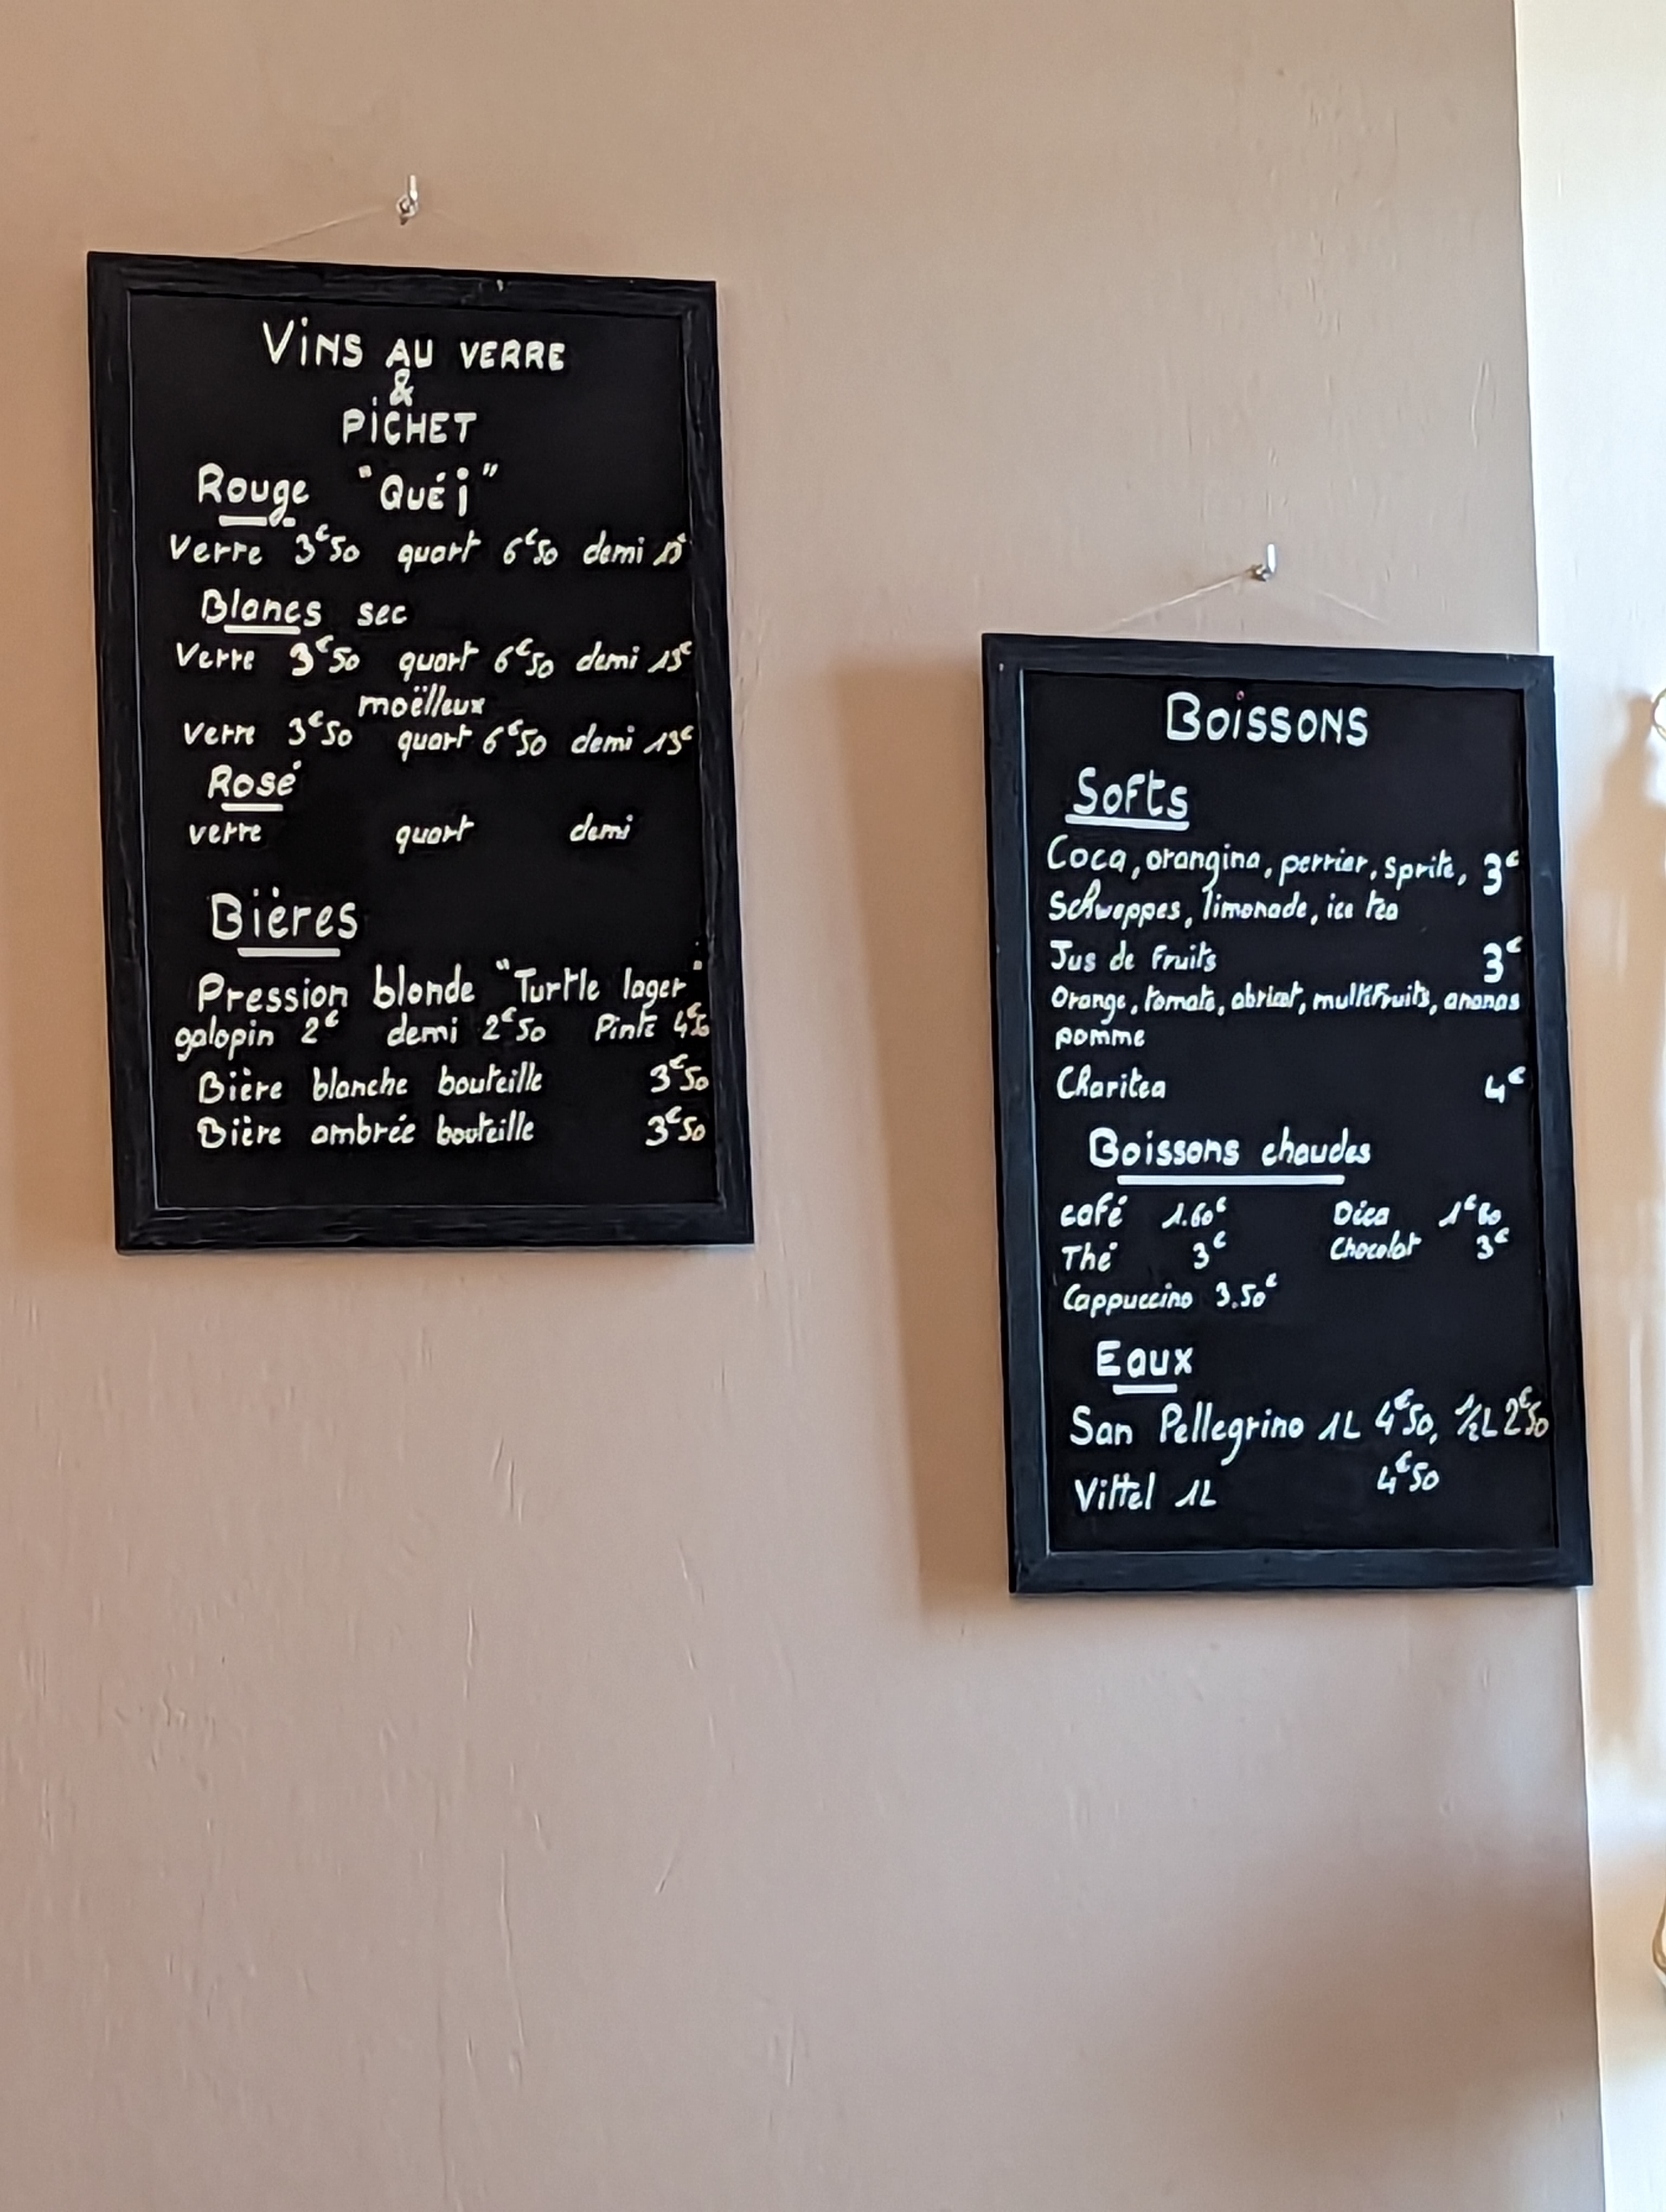 Vins au verre
&
Pichet
Rouge "Quéj"
Verre 3€50 quart 6€50 demi
Blancs sec
Verre 3€50 quart 6€50 demi 13€
moëlleux
Verre 3€50 quart 6€50 demi 13€
Rosé
verre quart demi
Bières
Pression blonde "Turtle lager"
galopin 2€ demi 2€50 Pinte 4€50
Bière blanche bouteille 3€50
Bière ambrée bouteille 3€50
Boissons
Softs
Coca, orangina, perrier, sprite, 3€
Schweppes, limonade, ice tea
Jus de Fruits 3€
Orange, tomate, abricot, multiFruits, ananas
pomme
Charitea 4€
Boissons chaudes
café 1.60€ Déca 1€60
Thé 3€ Chocolat 3€
Cappuccino 3.50€
Eaux
San Pellegrino 1L 4€50, 1/2L 2€50
Vittel 1L 4€50